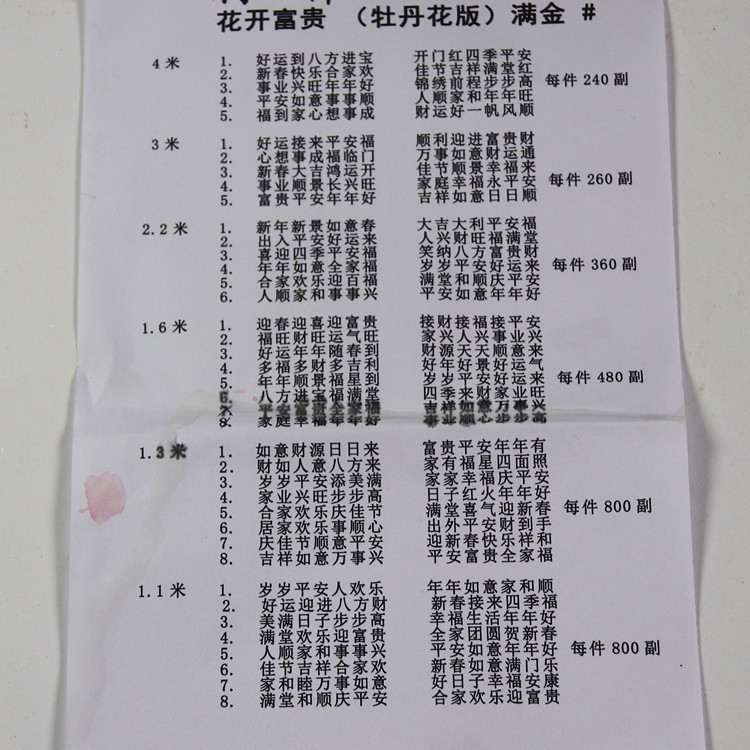 花开富贵 （牡丹花版）满金 #
4 米 1. 好运到八方进宝 开门红四季平安
2. 新春快乐合家欢 佳节吉祥满堂红
3. 事业兴旺年年好 锦绣前程步步高 每件 240 副
4. 平安如意事事顺 人顺家和年年旺
5. 福到家心想事成 财运好一帆风顺
3 米 1. 好运接来平安福 顺利迎进富贵财
2. 心想事成福临门 万事如意财运通
3. 新春大吉鸿运开 佳节顺景幸福来
4. 事业顺景长兴旺 家庭幸福永平安 每件 260 副
5. 富贵平安年年好 吉祥如意日日顺
2.2 米 1. 新年新景如意春 大吉大利平安福
2. 出入平安好运来 人兴财旺福满堂
3. 喜迎四季平安福 笑纳八方富贵财
4. 年年如意全家福 岁岁平安好运来 每件 360 副
5. 合家欢乐迎百福 满堂和顺庆平安
6. 人顺家和事事兴 平安如意年年好
1.6 米 1. 迎春迎喜迎富贵 接财接福接平安
2. 福旺财旺运气旺 家兴人兴事业兴
3. 好运年年随春到 财源天天顺意来
4. 多福多财多吉利 好人好景好运气
5. 岁岁平安好运来 每件 480 副
6.
7. 平安富贵全家福 吉祥如意万事兴
8. 家庭幸福年年好 事业顺心步步高
1.3 米 1. 如意财源日日来 富贵平安年年有
2. 财如人意八方来 家有福星四面照
3. 家家幸福庆平安
4. 家业兴旺步步高 日子红火年年好
5. 合家欢乐 佳节 满堂喜气迎新春 每件 800 副
6. 居家欢乐事顺心 出外平安财到手
7. 庆佳节顺意平安 迎新春快乐祥和
8. 吉祥如意万事兴 平安富贵全家福
1.1 米 1. 岁岁平安人欢乐 年年如意家和顺
2. 好运迎进八方财 新春接来四季福
3. 美满日子步步高 幸福生活年年好
4. 满堂欢乐迎富贵 全家团圆贺新春
5. 人顺家和事事兴 平安如意年年好 每件 800 副
6. 佳节吉祥合家欢 新春如意满门乐
7. 家和睦万事如意 好日子幸福安康
8. 满堂和顺庆平安 合家欢乐迎富贵